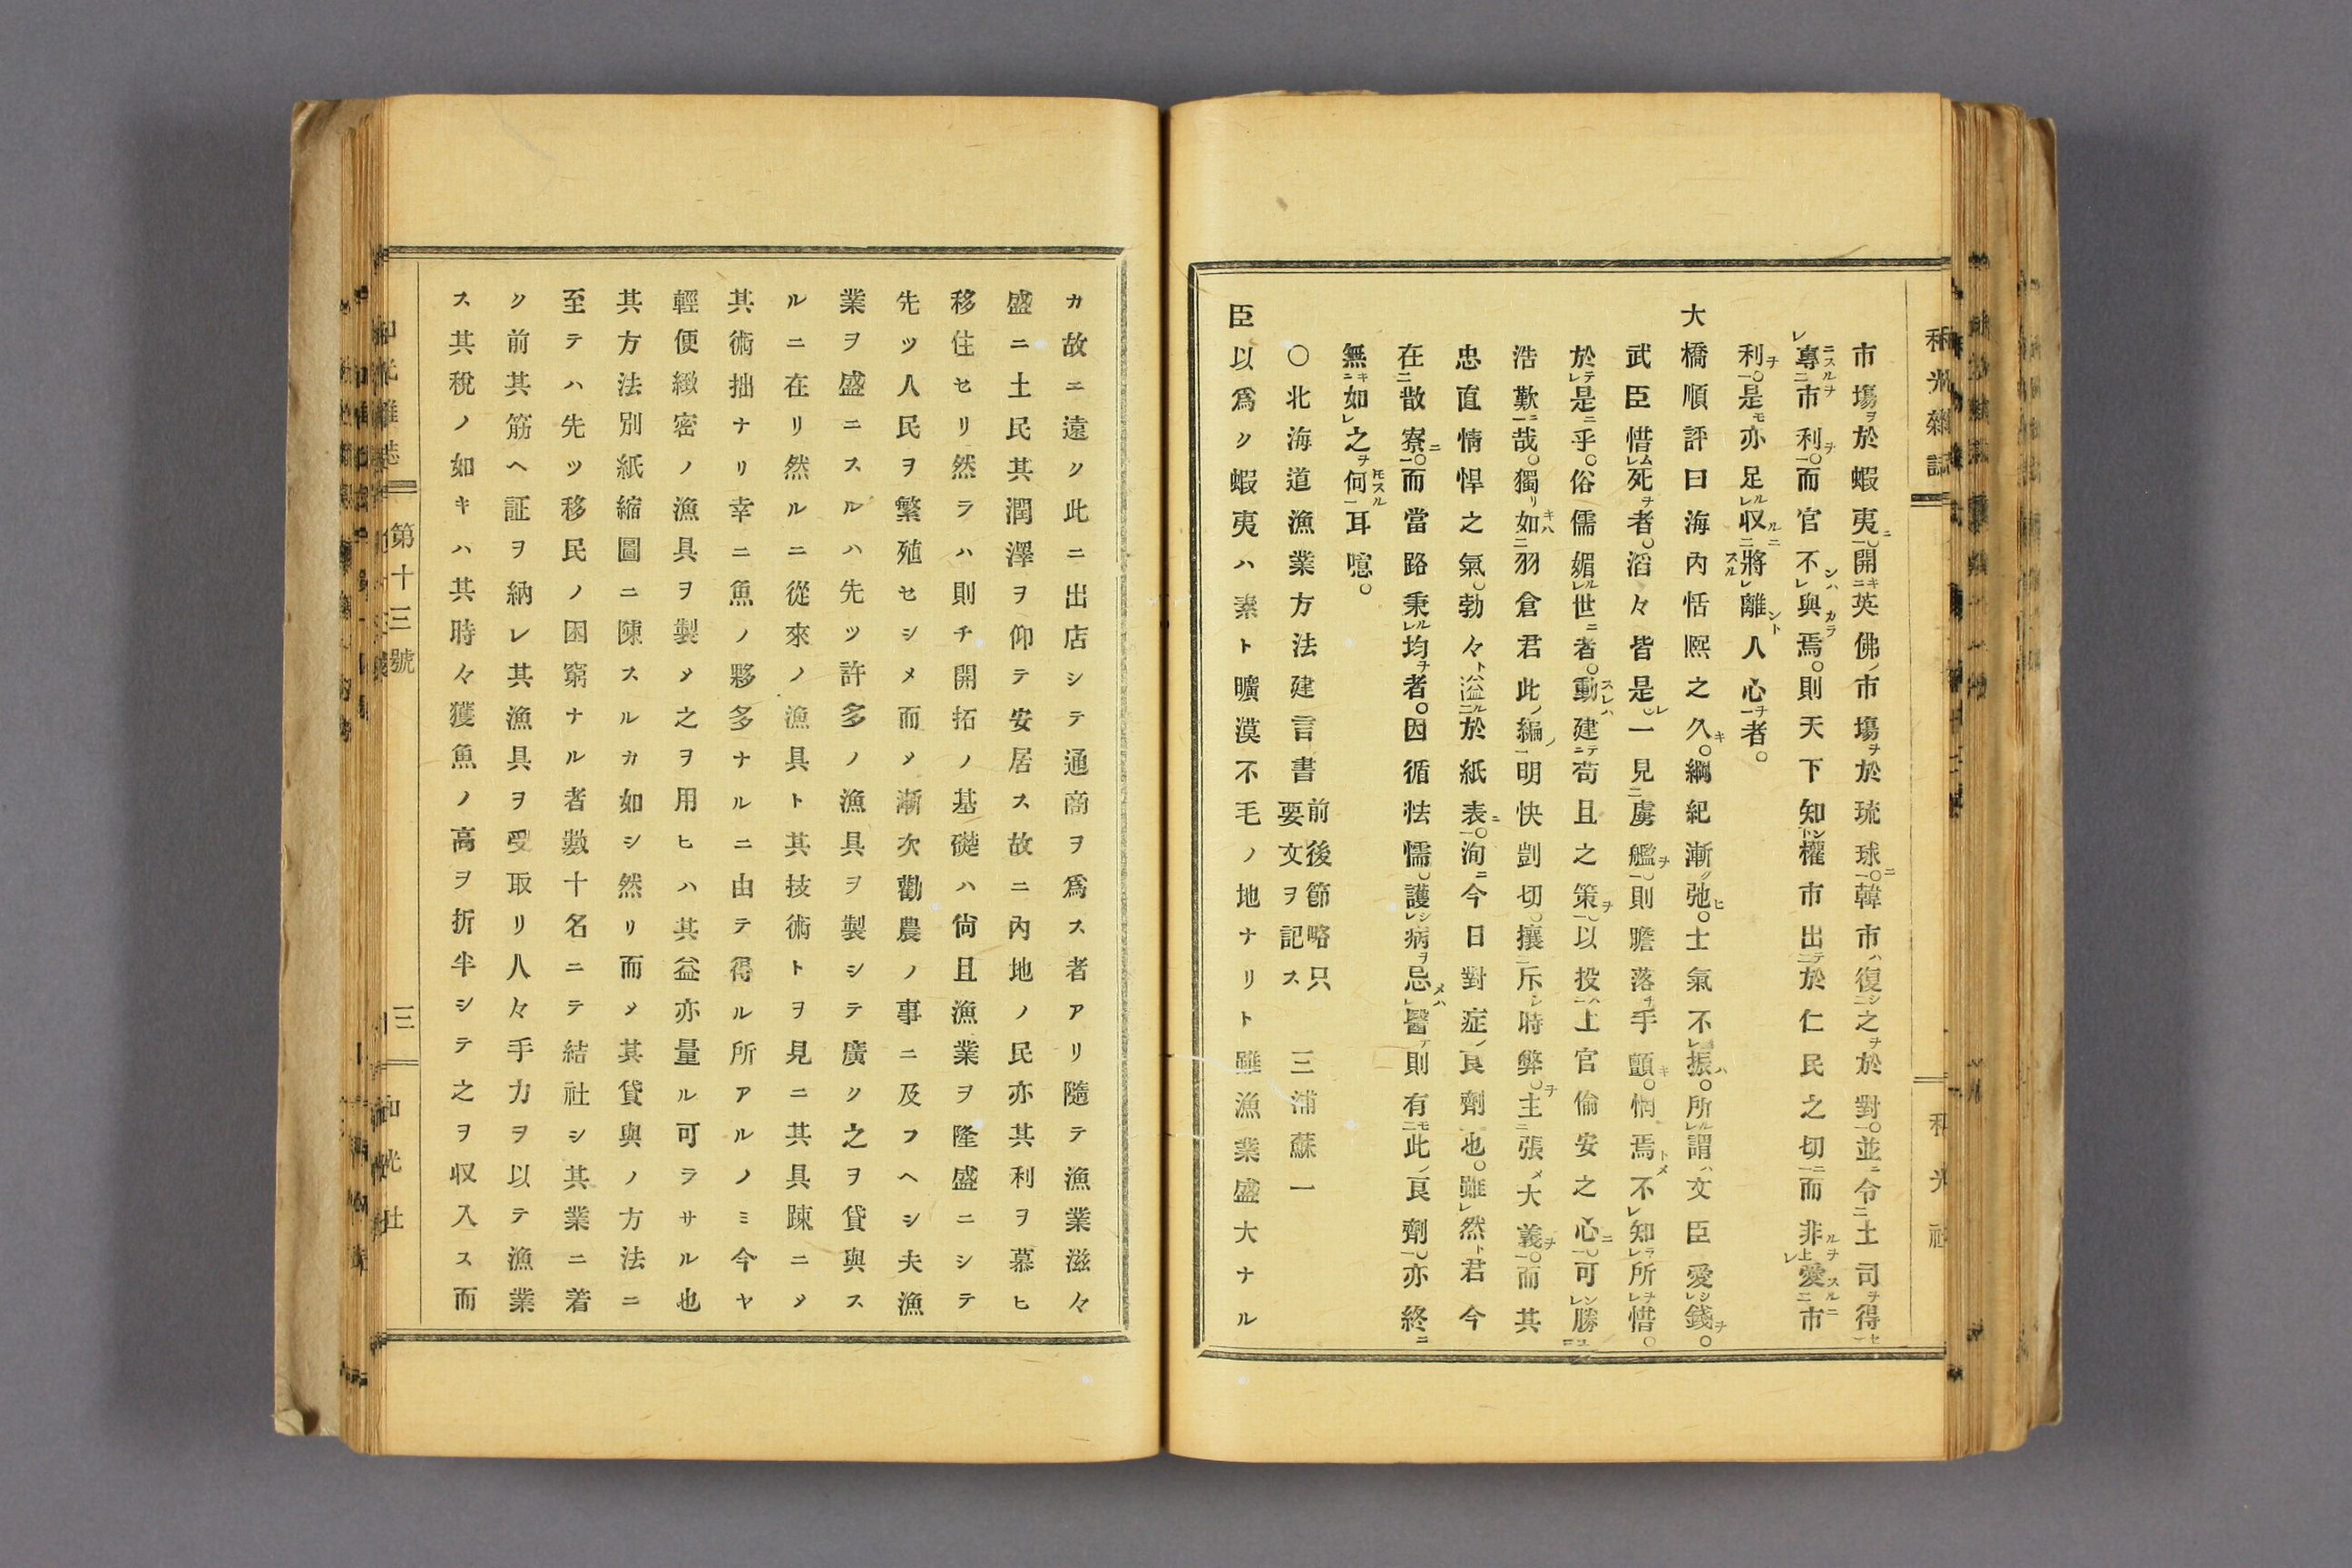 和光雜誌
和光社
市塲於蝦夷。開英佛市塲於琉球。韓市復之於對。並令土司得
專市利。而官不與焉。則天下知權市出於仁民之切而非愛市
利。是亦足収將離人心者。
大橋順評曰海內恬熈之久。綱紀漸弛。士氣不振。所謂文臣愛錢。
武臣惜死者。滔々皆是。一見虜艦。則膽落手顫。惘焉不知所惜。
於是乎。俗儒媚世者。動建苟且之策。以投上官偷安之心。可勝
浩歎哉。獨如羽倉君此編。明快剴切。攘斥時弊。主張大義。而其
忠直情悍之氣。勃々溢於紙表。洵今日對症良劑也。雖然君今
在散寮。而當路秉均者。因循怯懦。護病忌醫。則有此良劑。亦終
無如之何耳噫。
○北海道漁業方法建言書 前後節略只要文ヲ記ス 三浦蘇一
臣以爲ク蝦夷ハ素ト曠漠不毛ノ地ナリト雖漁業盛大ナル
カ故ニ遠ク此ニ出店シテ通商ヲ爲ス者アリ隨テ漁業滋々
盛ニ土民其潤澤ヲ仰テ安居ス故ニ內地ノ民亦其利ヲ慕ヒ
移住セリ然ラハ則チ開拓ノ基礎ハ尙且漁業ヲ隆盛ニシテ
先ツ人民ヲ繁殖セシメ而メ漸次勸農ノ事ニ及フヘシ夫漁
業ヲ盛ニスルハ先ツ許多ノ漁具ヲ製シテ廣ク之ヲ貸與ス
ルニ在リ然ルニ從來ノ漁具ト其技術トヲ見ニ其具踈ニメ
其術拙ナリ幸ニ魚ノ夥多ナルニ由テ得ル所アルノミ今ヤ
輕便緻密ノ漁具ヲ製メ之ヲ用ヒハ其益亦量ル可ラサル也
其方法別紙縮圖ニ陳スルカ如シ然リ而メ其貸與ノ方法ニ
至テハ先ツ移民ノ困窮ナル者數十名ニテ結社シ其業ニ着
ク前其筋ヘ証ヲ納レ其漁具ヲ受取リ人々手力ヲ以テ漁業
ス其稅ノ如キハ其時々獲魚ノ高ヲ折半シテ之ヲ収入ス而
和光雜誌
第十三號
三
和光社